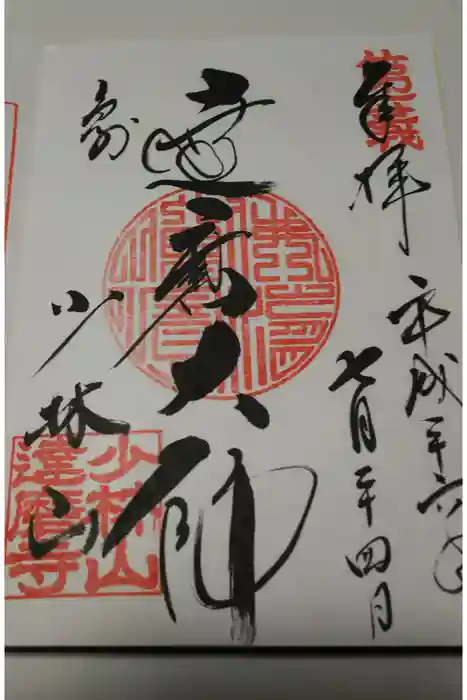 第一義
奉拝
平成二十六年
七月二十四日
達磨大師
少林山
少林山
達磨寺